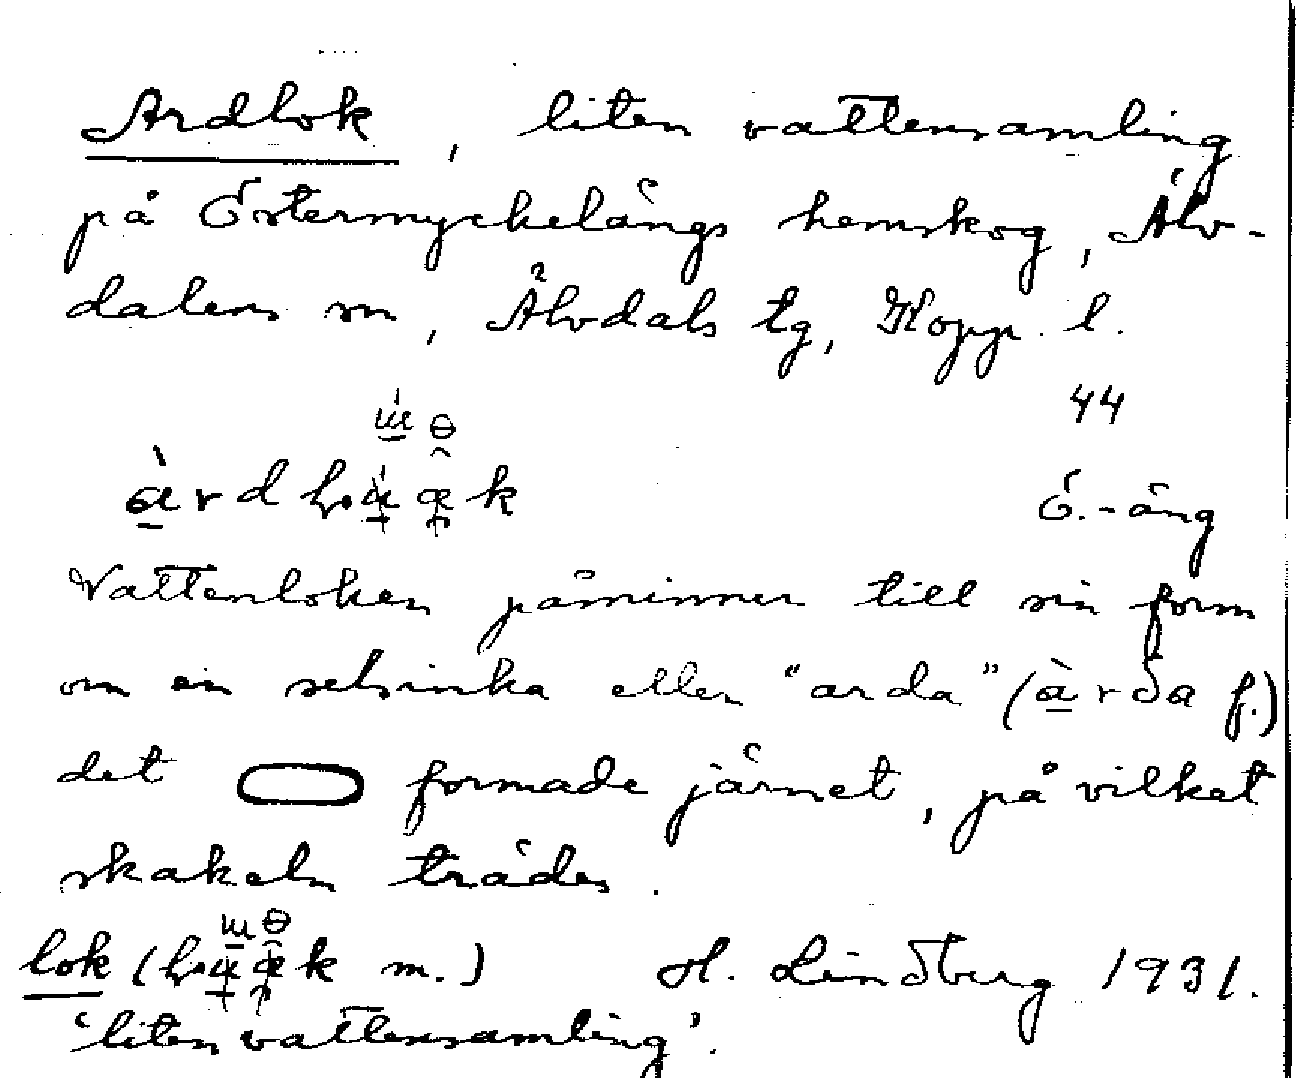 Ardlok, liten vattensamling
på Östermyckelängs hemskog, Älv-
dalens sn, Älvdals tg, Kopp. l.
44
Ö.-äng
Vattenloken påminner till sin form
om en selsinka eller "arda" (àrða f.)
det formade järnet, på vilket
skakeln trädes.
lok ( m.) H. Lindberg 1931.
'liten vattensamling'.